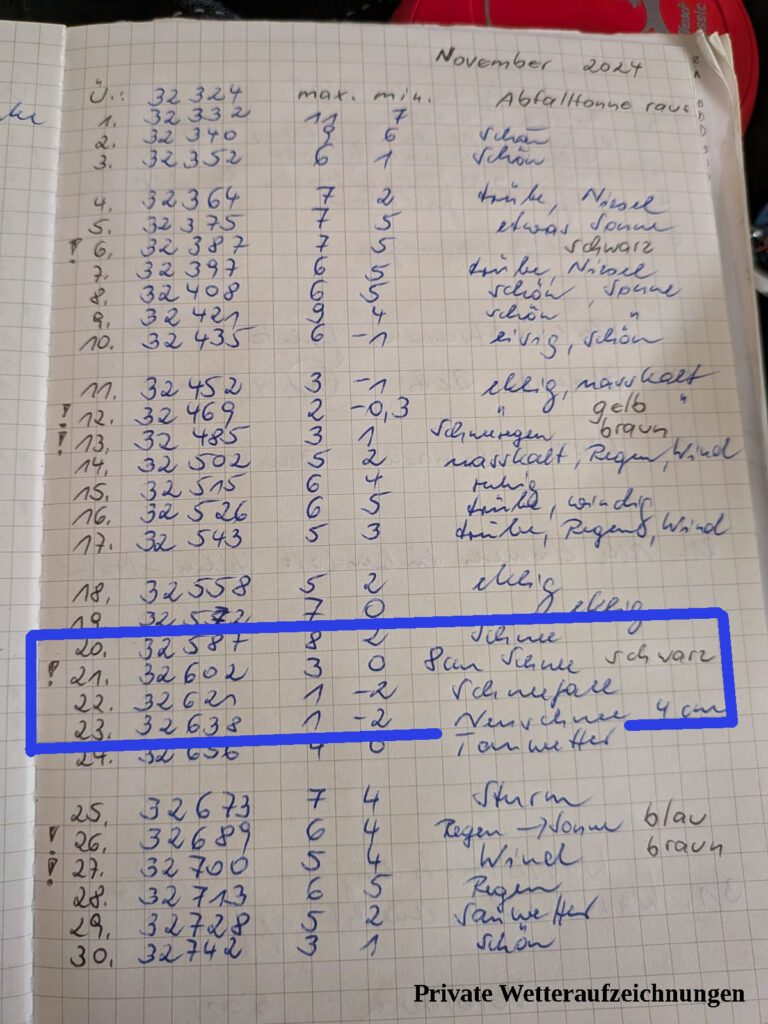 November 2024
Ü.: 32 324 max. min. Abfalltonne raus
1. 32 332 11 7
2. 32 340 9 6 schön
3. 32 352 6 1 schön
4. 32 364 7 2 trübe, Niesel
5. 32 375 7 5 etwas Sonne
! 6. 32 387 7 5 schwarz
7. 32 397 6 5 trübe, Niesel
8. 32 408 6 5 schön, Sonne
9. 32 421 9 4 schön "
10. 32 435 6 -1 eisig, schön
11. 32 452 3 -1 eklig, nasskalt
! 12. 32 469 2 -0,3 " gelb "
! 13. 32 485 3 1 braun
14. 32 502 5 2 nasskalt, Regen, Wind
15. 32 515 6 4 ruhig
16. 32 526 6 5 trübe, windig
17. 32 543 5 3 trübe, Regen, Wind
18. 32 558 5 2 eklig
19. 32 572 7 0 eklig
20. 32 587 8 2 Schnee
! 21. 32 602 3 0 8cm Schnee schwarz
22. 32 621 1 -2 Schneefall
23. 32 638 1 -2 Neuschnee 4 cm
24. 32 656 4 0 Tauwetter
25. 32 673 7 4 Sturm
! 26. 32 689 6 4 Regen → Sonne blau
! 27. 32 700 5 4 Wind braun
28. 32 713 6 5 Regen
29. 32 728 5 2 Sauwetter
30. 32 742 3 1 schön
Private Wetteraufzeichnungen